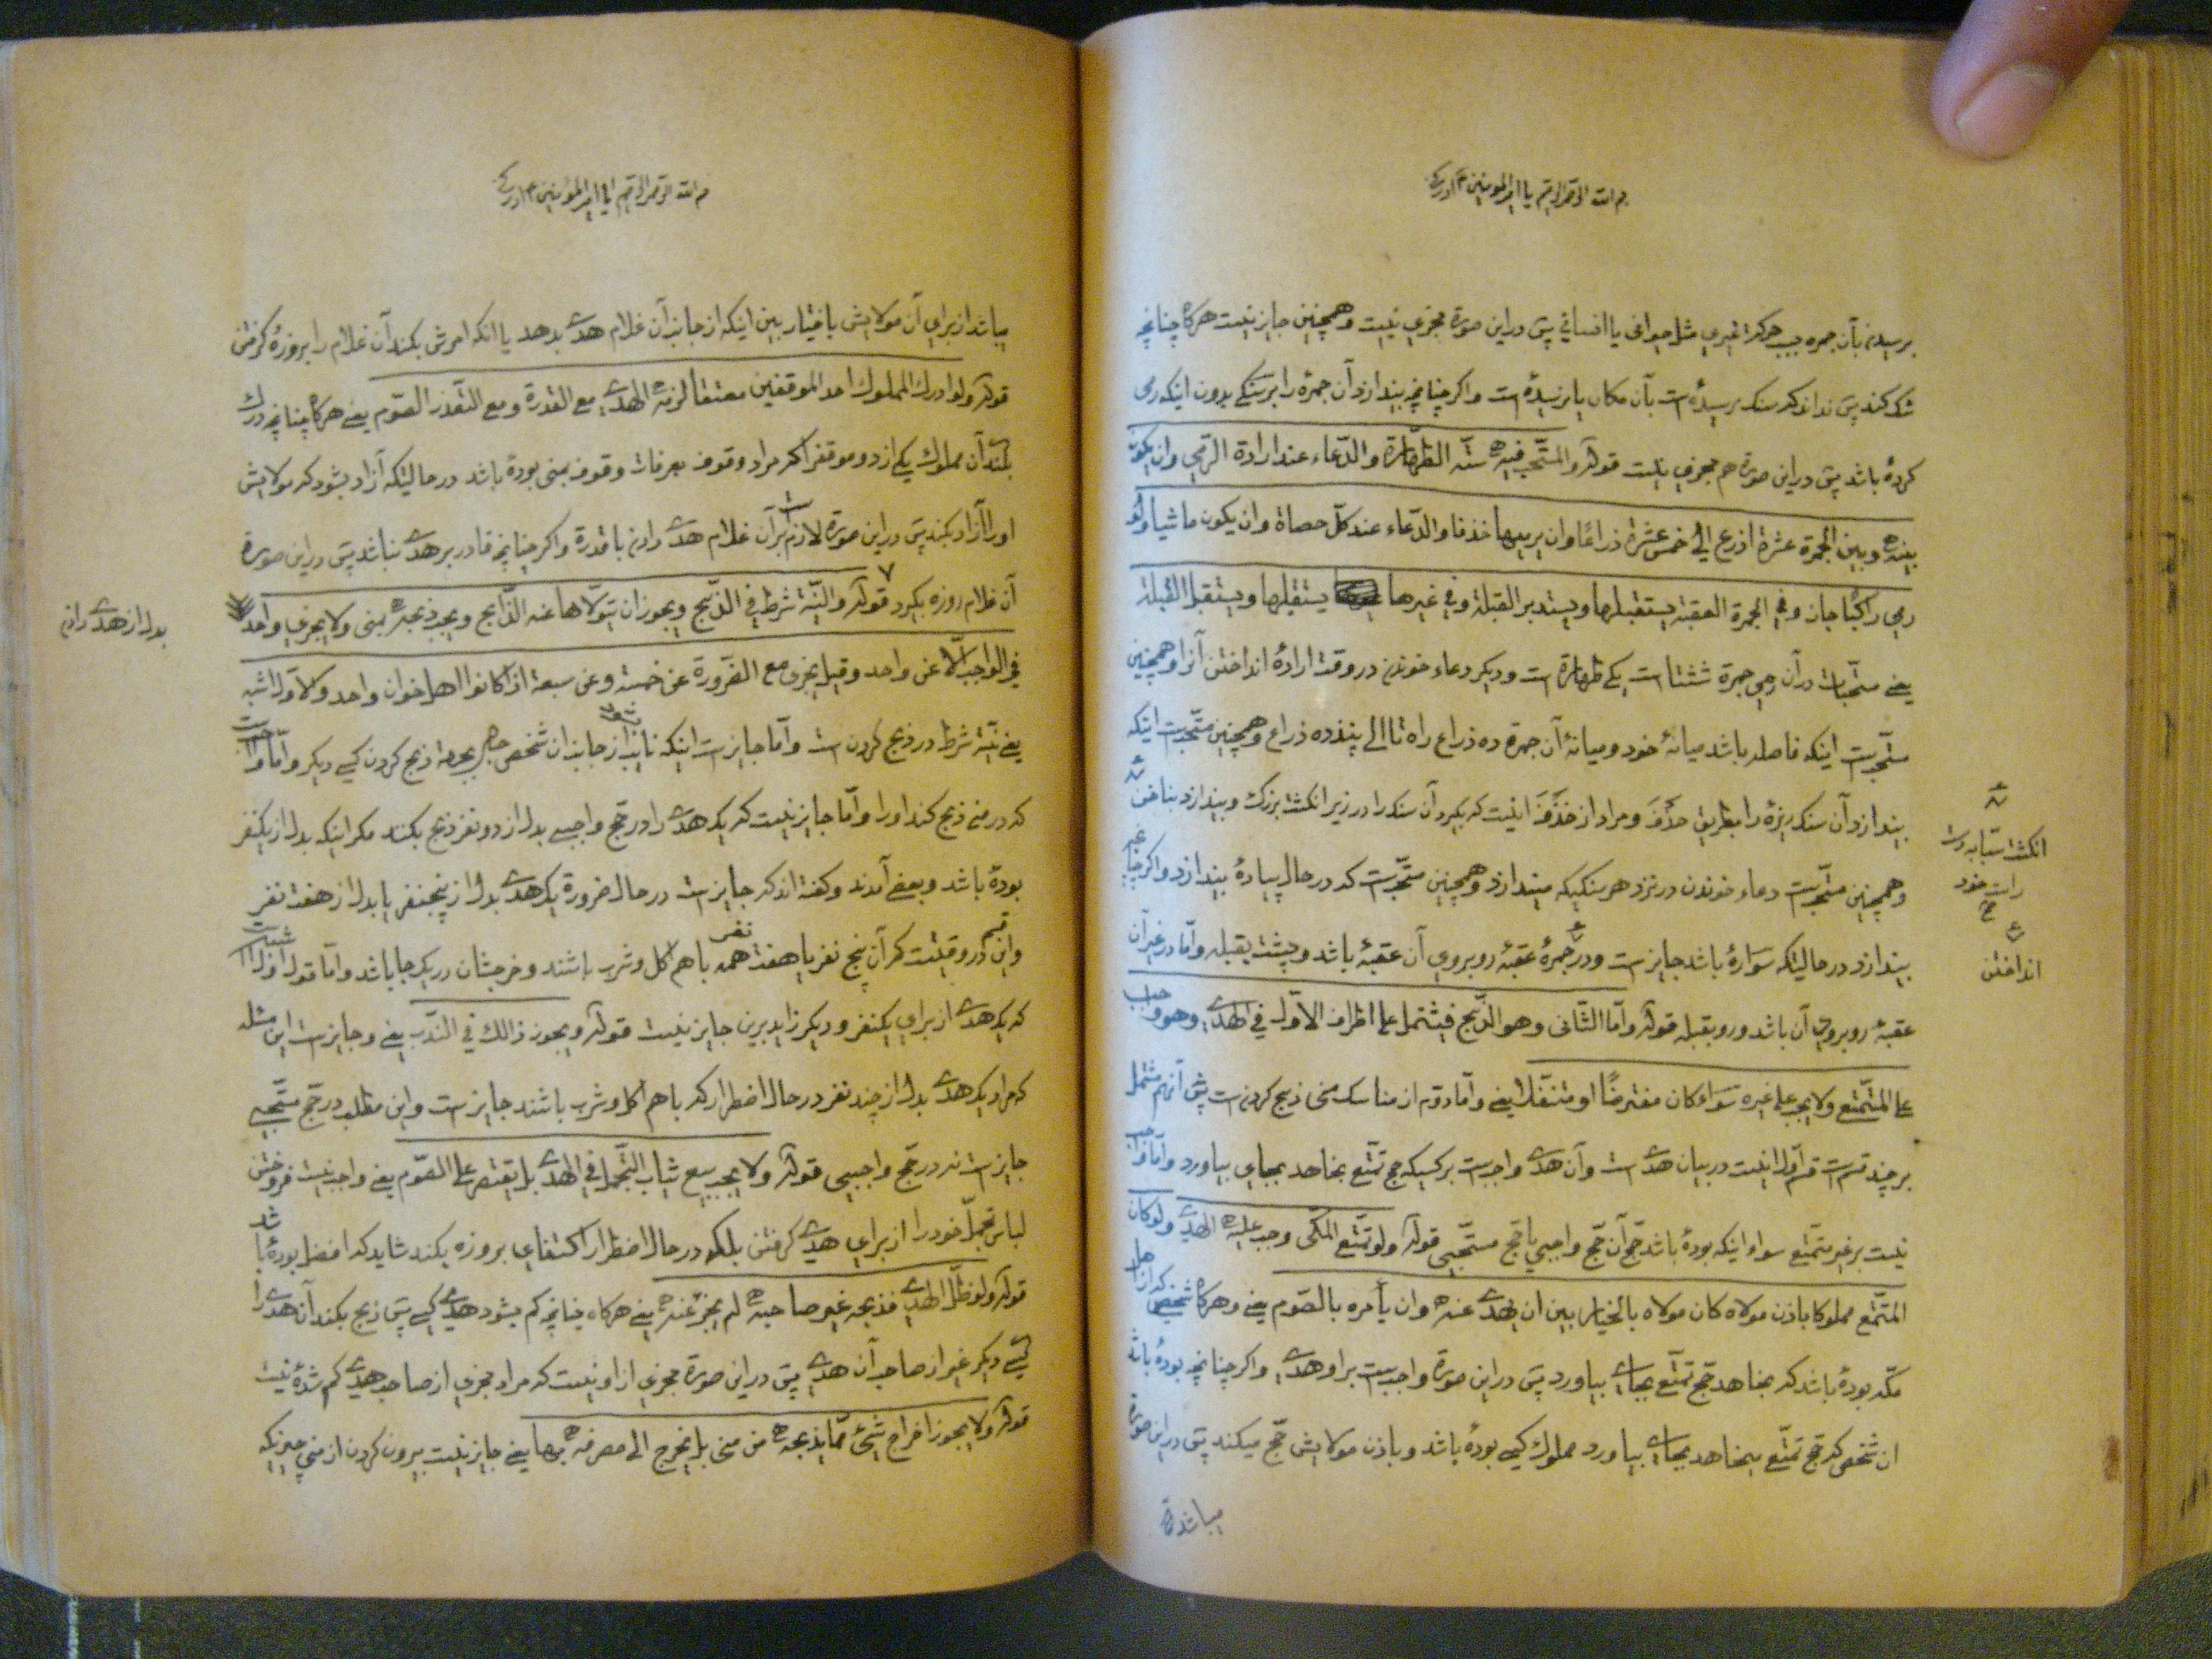 بسم الله الرحمن الرحیم یا امیر المؤمنین ع ادرکنی
برسیدن بآن جمره بسبب حرکت غیری مثل حیوانی یا انسانی پس دراین صورة مجزی نیست وهمچنین جایز نیست هرکاه چنانچه
شک کند پس نداند که سنک رسیده است بآن مکان یا نرسیده است واکر چنانچه بیندازد آن جمرة را بر سنکی بدون اینکه رمی
کرده باشد پس دراین صورة هم مجزی نیست قوله والمستحب فیه ستة الطهارة والدعاء عند ارادة الرمی وان یکون
بینه وبین الجمرة عشرة اذرع الی خمس عشرة ذراعا وان یرمیها خذفا والدعاء عند کل حصاة وان یکون ماشیا ولو
رمی راکبا جاز وفی الجمرة العقبة یستقبلها ویستدبر القبلة وفی غیرها یستقبلها ویستقبل القبلة
یعنی مستحبات درآن رمی جمرة شش تا است یکی طهارة است ودیکر دعاء خوندن در وقت ارادهٔ انداختن آنرا وهمچنین
مستحب است اینکه فاصله باشد میانهٔ خود ومیانهٔ آن جمرة ده ذراع راه تا الی پنزده ذراع وهمچنین مستحب است اینکه
بیندازد آن سنک ریزهٔ را بطریق خذف ومراد از خذف اینست که بکیرد آن سنک را در زیر انکشت بزرک وبیندازد بناخن
انکشت سبابه دست
راست خود
وهمچنین مستحب است دعاء خوندن در نزد هر سنکیکه میندازد وهمچنین مستحب است که در حال پیادهٔ بیندازد واکر چنانچه
بیندازد درحالیتکه سوارهٔ باشد جایز است ودر جمرهٔ عقبهٔ روبروی آن عقبهٔ باشد وپشت بقبله واما درغیر آن
انداختن
عقبهٔ روبروی آن باشد ورو بقبله قوله واما الثانی وهو الذبح فیشتمل علی اطراف الاول فی الهدی وهو واجب
علی المتمتع ولا یجب علی غیره سواء کان مفترضا او متنفلا یعنی واما دوم از مناسک منی ذبح کردنست پس آنهم مشتمل
بر چند قسم است قسم اول اینست در بیان هدی است وآن هدی واجب است برکسیکه حج تمتع بخاهد بجای بیاورد واما واجب
نیست بر غیر متمتع سواء اینکه بوده باشد حج آن حج واجبی یا حج مستحبی قوله ولو تمتع المکی وجب علیه الهدی ولو کان
المتمتع مملوکا باذن مولاه کان مولاه بالخیار بین ان یهدی عنه وان یأمره بالصوم یعنی وهرکاه شخصی که از اهل
مکه بودهٔ باشد که بخاهد حج تمتع بجای بیاورد پس دراین صورة واجب است براو هدی واکر چنانچه بودهٔ باشد
ان شخصی که حج تمتع میخاهد بجای بیاورد مملوک کسی بودهٔ باشد وباذن مولایش حج میکند پس دراین صورة
میباشد
بسم الله الرحمن الرحیم یا امیر المؤمنین ع ادرکنی
میباشد از برای آن مولایش باختیار بین اینکه از جانب آن غلام هدی بدهد یا انکه امرش بکند آن غلام را بروزهٔ کرفتن
قوله ولو ادرک المملوک احد الموقفین معتقا لزمه الهدی مع القدرة ومع التعذر الصوم یعنی هرکاه چنانچه درک
بکند آن مملوک یکی از دو موقف را که مراد وقوف بعرفات وقوف بمنی بودة باشد درحالیتکه آزاد بشود که مولایش
اورا آزاد بکند پس دراین صورة لازم است برآن غلام هدی دادن باقدرة واکر چنانچه قادر بر هدی نباشد پس دراین صورة
آن غلام روزه بکیرد قوله والنیة شرط فی الذبح ویجوز ان یتولاها عنه الذابح ویجب ذبحه بمنی ولا یجزی واحد
بدل از هدی دادن
فی الواجب الا عن واحد وقیل یجزی مع الضرورة عن خمسة وعن سبعة اذا کانوا اهل خوان واحد والاول اشبه
یعنی نیة شرط در ذبح کردن است واما جایز است اینکه نایب شود از جانب ان شخص حاجی بجهة ذبح کردن کسی دیکر واما واجب است
که در منی ذبح کند اورا واما جایز نیست که یک هدی را در حج واجبی بدل از دو نفر ذبح بکند مکر اینکه بدل از یکنفر
بودهٔ باشد وبعضی آمدند وکفته اند که جایز است درحال ضرورة یک هدی بدل از پنجنفر یا بدل از هفت نفر
واین قسم در وقتیست که آن پنج نفر یا هفت نفر همه باهم اکل وشرب باشند وخرجشان دریک جا باشد واما قول اول اشبه است
که یک هدی از برای یکنفر ودیکر زاید براین جایز نیست قوله ویجوز ذالک فی الندب یعنی وجایز است این مسئله
که مراد یک هدی بدل از چند نفر درحال اضطرار که باهم اکل وشرب باشند جایز است واین مطلب درحج مستحبی
جایز است نه درحج واجبی قوله ولا یجب بیع ثیاب التجمل فی الهدی بل یقتصر علی الصوم یعنی واجب نیست فروختن
لباس تجمل خودرا از برای هدی کرفتن بلکه درحال اضطرار اکتفای بروزه بکند شاید که افضل بودهٔ باشد
قوله ولو ضل الهدی فذبحه غیر صاحبه لم یجز عنه یعنی هرکاه چنانچه کم بشود هدی کسی پس ذبح بکند آن هدی را
کسی دیکر غیر از صاحب آن هدی پس دراین صورة مجزی از او نیست که مراد مجزی از صاحب هدی کم شدهٔ نیست
قوله ولا یجوز اخراج شیئ مما یذبحه من منی بل یخرج الی مصرفه بها یعنی جایز نیست بیرون کردن از منی چیزیکه